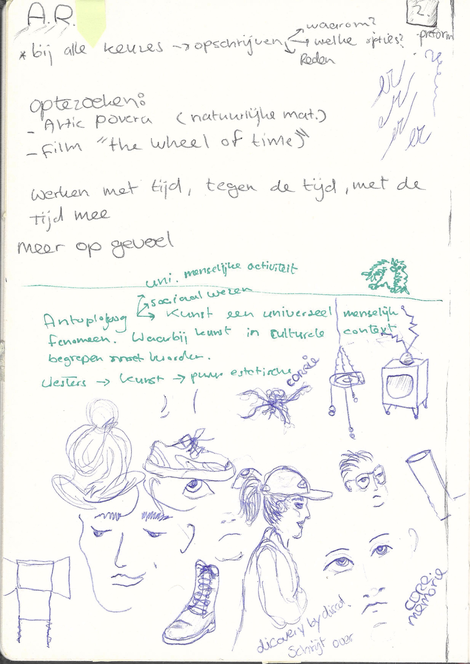 A.R.
2.
* bij alle keuzes → opschrijven
waarom?
welke opties?
Reden
er
er
er
er
optezoeken:
- Artic povera (natuurlijke mat.)
- Film "the wheel of time"
werken met tijd, tegen de tijd, met de
tijd mee
meer op gevoel
uni. menselijke activiteit
sociaal wezen
→ Kunst een universeel menselijk
fenomeen. Waarbij kunst in culturele context
begrepen moet worden.
Westers → Kunst → puur estetische
core
memorie
discovery by
Schrijft over